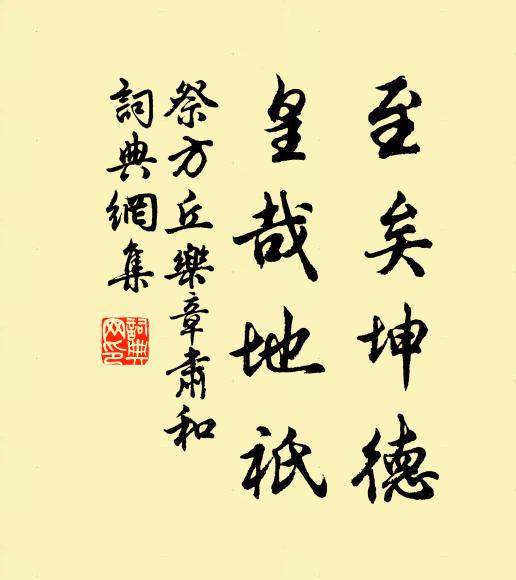 至矣坤德
皇哉地祇
祭方丘樂章肅和
詞典網集
詞典网印